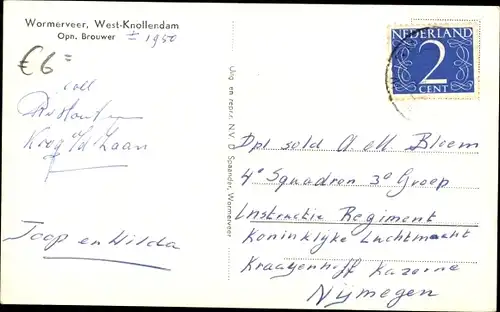 Wormerveer, West-Knollendam
Opn. Brouwer ± 1950
€6=
coll
Koog a/d Zaan
Jaap en Hilda
Uitg en repr. N.V. d Spaander, Wormerveer
NEDERLAND
2
CENT
Dpl sold A. M Bloem
4e Squadron 3e Groep
Instructie Regiment
Koninklijke Luchtmacht
Kraayenhoff Kazerne
Nijmegen